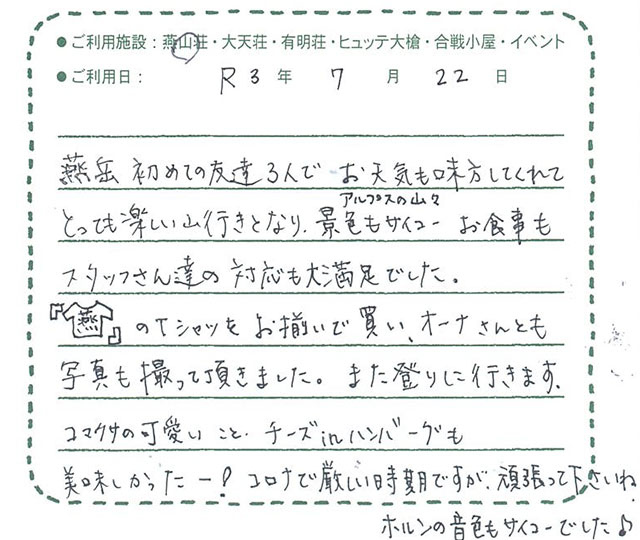 ●ご利用施設：燕山荘・大天荘・有明荘・ヒュッテ大槍・合戦小屋・イベント
●ご利用日： R3年 7月 22日
燕岳 初めての友達3人で お天気も味方してくれて
とっても楽しい山行きとなり、景色もサイコー お食事も
アルプスの山々
スタッフさん達の対応も大満足でした。
『燕』のTシャツを お揃いで買い、オーナさんとも
写真も撮って頂きました。また登りに行きます。
コマクサの可愛いこと、チーズinハンバーグも
美味しかったー! コロナで厳しい時期ですが、頑張って下さいね
ホルンの音色もサイコーでした♪